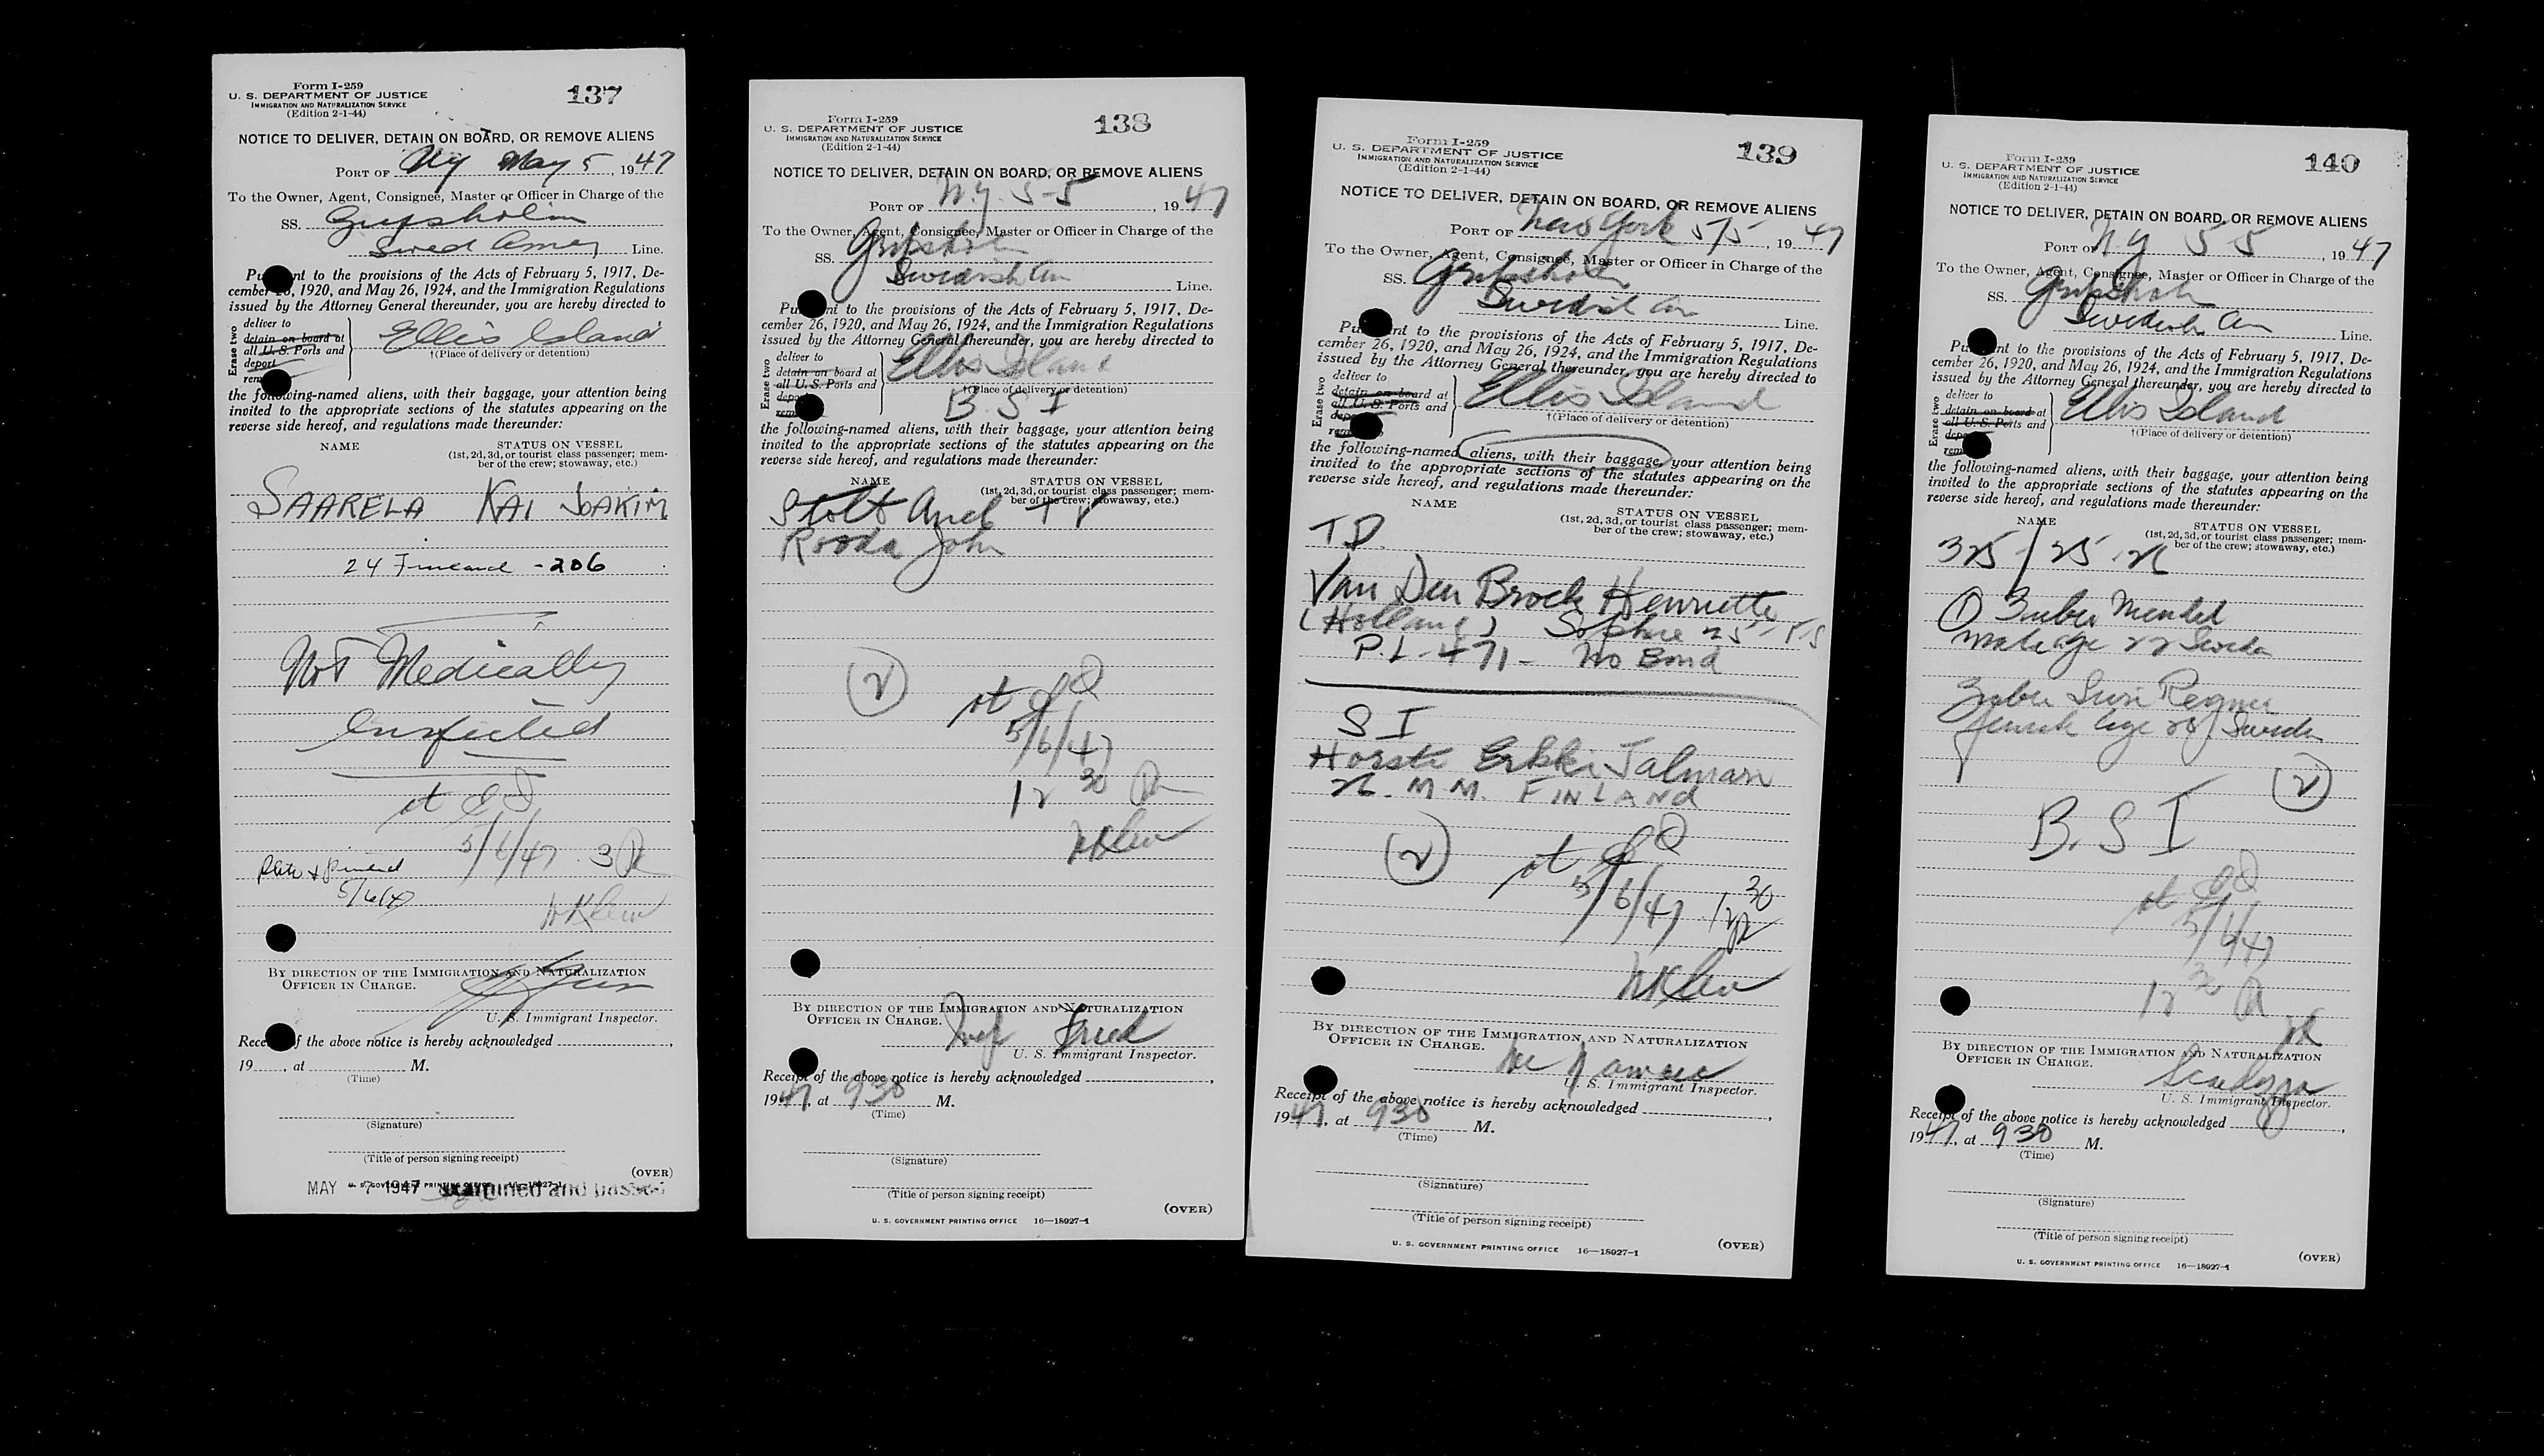 Form I-259
137
U. S. DEPARTMENT OF JUSTICE
IMMIGRATION AND NATURALIZATION SERVICE
(Edition 2-1-44)
NOTICE TO DELIVER, DETAIN ON BOARD, OR REMOVE ALIENS
PORT OF NY May 5, 1947
To the Owner, Agent, Consignee, Master or Officer in Charge of the
SS. Gripsholm
Swed Amer Line.
Pu nt to the provisions of the Acts of February 5, 1917, De-
cember 26, 1920, and May 26, 1924, and the Immigration Regulations
issued by the Attorney General thereunder, you are hereby directed to
Erase two
deliver to
detain on board at
all U. S. Ports and
deport
rem
Ellis Island
†(Place of delivery or detention)
the following-named aliens, with their baggage, your attention being
invited to the appropriate sections of the statutes appearing on the
reverse side hereof, and regulations made thereunder:
NAME
STATUS ON VESSEL
(1st, 2d, 3d, or tourist class passenger; mem-
ber of the crew; stowaway, etc.)
SAARELA KAI JOAKIM
24 Finland - 206
Not Medically
at EI
5/6/47 3 P
5/6/47
BY DIRECTION OF THE IMMIGRATION AND NATURALIZATION
OFFICER IN CHARGE.
U. S. Immigrant Inspector.
Rece f the above notice is hereby acknowledged
19 , at M.
(Time)
(Signature)
(Title of person signing receipt)
(OVER)
MAY - 7 1947 examined and passed
Form I-259
138
U. S. DEPARTMENT OF JUSTICE
IMMIGRATION AND NATURALIZATION SERVICE
(Edition 2-1-44)
NOTICE TO DELIVER, DETAIN ON BOARD, OR REMOVE ALIENS
PORT OF N.Y. 5-5, 1947
To the Owner, Agent, Consignee, Master or Officer in Charge of the
SS. Gripsholm
Swedish Am Line.
Pu nt to the provisions of the Acts of February 5, 1917, De-
cember 26, 1920, and May 26, 1924, and the Immigration Regulations
issued by the Attorney General thereunder, you are hereby directed to
Erase two
deliver to
detain on board at
all U. S. Ports and
depo
rem
Ellis Island
†(Place of delivery or detention)
B S I
the following-named aliens, with their baggage, your attention being
invited to the appropriate sections of the statutes appearing on the
reverse side hereof, and regulations made thereunder:
NAME
STATUS ON VESSEL
(1st, 2d, 3d, or tourist class passenger; mem-
ber of the crew; stowaway, etc.)
Stolt
John
2
at EI
5/6/47
12 30 P
BY DIRECTION OF THE IMMIGRATION AND NATURALIZATION
OFFICER IN CHARGE.
Fried
U. S. Immigrant Inspector.
Receipt of the above notice is hereby acknowledged
1947, at 930 M.
(Time)
(Signature)
(Title of person signing receipt)
(OVER)
U. S. GOVERNMENT PRINTING OFFICE 16—18027-1
Form I-259
139
U. S. DEPARTMENT OF JUSTICE
IMMIGRATION AND NATURALIZATION SERVICE
(Edition 2-1-44)
NOTICE TO DELIVER, DETAIN ON BOARD, OR REMOVE ALIENS
PORT OF New York 5/5, 1947
To the Owner, Agent, Consignee, Master or Officer in Charge of the
SS. Gripsholm
Swedish Am Line.
Pu nt to the provisions of the Acts of February 5, 1917, De-
cember 26, 1920, and May 26, 1924, and the Immigration Regulations
issued by the Attorney General thereunder, you are hereby directed to
Erase two
deliver to
detain on board at
all U. S. Ports and
depo
rem
Ellis Island
†(Place of delivery or detention)
the following-named aliens, with their baggage, your attention being
invited to the appropriate sections of the statutes appearing on the
reverse side hereof, and regulations made thereunder:
NAME
STATUS ON VESSEL
(1st, 2d, 3d, or tourist class passenger; mem-
ber of the crew; stowaway, etc.)
T.D.
Van Den Broek Henriette
(Holland) Sophie
P.L - 471 - No Bond
S I
Erkki Jalmari
M M. FINLAND
2
at EI
5/6/47 12 30 P
BY DIRECTION OF THE IMMIGRATION AND NATURALIZATION
OFFICER IN CHARGE.
U. S. Immigrant Inspector.
Receipt of the above notice is hereby acknowledged
1947, at 930 M.
(Time)
(Signature)
(Title of person signing receipt)
(OVER)
U. S. GOVERNMENT PRINTING OFFICE 16—18027-1
Form I-259
140
U. S. DEPARTMENT OF JUSTICE
IMMIGRATION AND NATURALIZATION SERVICE
(Edition 2-1-44)
NOTICE TO DELIVER, DETAIN ON BOARD, OR REMOVE ALIENS
PORT OF N Y 5 5, 1947
To the Owner, Agent, Consignee, Master or Officer in Charge of the
SS. Gripsholm
Swedish Am Line.
Pu nt to the provisions of the Acts of February 5, 1917, De-
cember 26, 1920, and May 26, 1924, and the Immigration Regulations
issued by the Attorney General thereunder, you are hereby directed to
Erase two
deliver to
detain on board at
all U. S. Ports and
depo
rem
Ellis Island
†(Place of delivery or detention)
the following-named aliens, with their baggage, your attention being
invited to the appropriate sections of the statutes appearing on the
reverse side hereof, and regulations made thereunder:
NAME
STATUS ON VESSEL
(1st, 2d, 3d, or tourist class passenger; mem-
ber of the crew; stowaway, etc.)
Mendel
male age 22 Sweden
age Sweden
2
B. S I
at EI
5/6/47
12 30 P
BY DIRECTION OF THE IMMIGRATION AND NATURALIZATION
OFFICER IN CHARGE.
U. S. Immigrant Inspector.
Receipt of the above notice is hereby acknowledged
1947, at 930 M.
(Time)
(Signature)
(Title of person signing receipt)
(OVER)
U. S. GOVERNMENT PRINTING OFFICE 16—18027-1